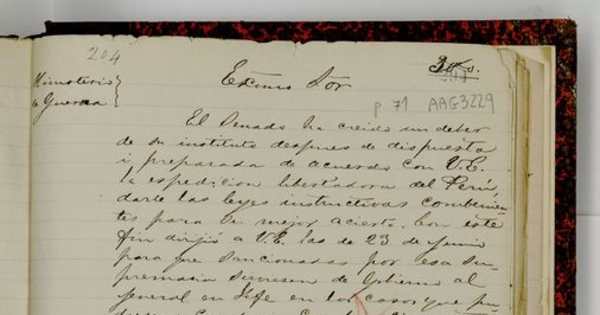 204
Ministerio
de Guerra
Exmo Sor
p. 71 AAG3229
El Senado ha creido un deber
de su instituto despues de dispuesta
i preparada de acuerdo con V.E.
la espedicion libertadora del Perú,
darle las leyes instructivas combenien-
tes para su mejor acierto. Con este
fin dirijió a V.E. las de 23 de Junio
para que sancionadas por esa Su-
premacia sirviesen de Gobierno al
Jeneral en Jefe en los casos que pu-